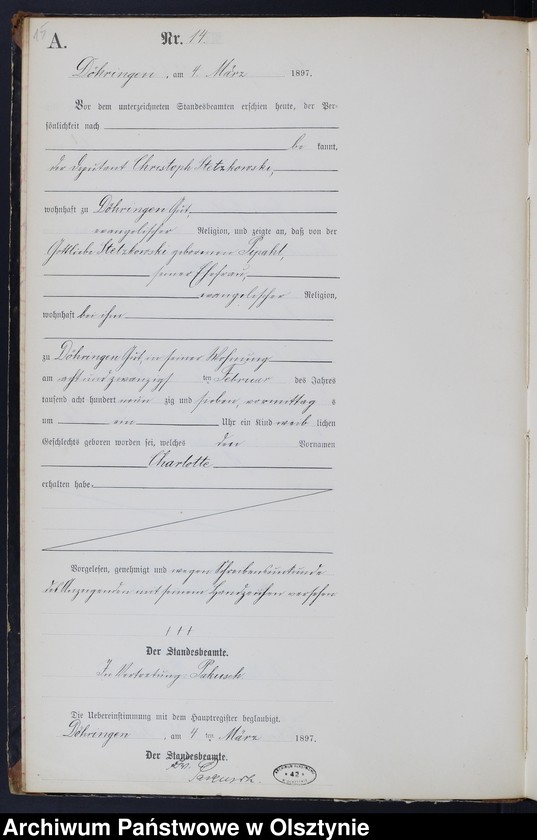 A.
Nr. 14.
Döhringen, am 4. März 1897.
Vor dem unterzeichneten Standesbeamten erschien heute, der Per-
sönlichkeit nach
be kannt,
der Deputant Christoph Stetzkowski,
wohnhaft zu Döhringen Gut,
evangelischer Religion, und zeigte an, daß von der
Gottliebe Stetzkowski geborenen
seiner Ehefrau,
evangelischer Religion,
wohnhaft bei ihm
zu Döhringen Gut, in seiner Wohnung
am acht und zwanzigs ten Februar des Jahres
tausend acht hundert neun zig und sieben, vormittag s
um ein Uhr ein Kind weib lichen
Geschlechts geboren worden sei, welches den Vornamen
Charlotte
erhalten habe.
Vorgelesen, genehmigt und wegen Schreibensunkunde
des Anzeigenden mit seinem Handzeichen versehen
†††
Der Standesbeamte.
In Vertretung Pakusch
Die Uebereinstimmung mit dem Hauptregister beglaubigt.
Döhringen, am 4 ten März 1897.
Der Standesbeamte.
Pakusch.
42
Archiwum Państwowe w Olsztynie